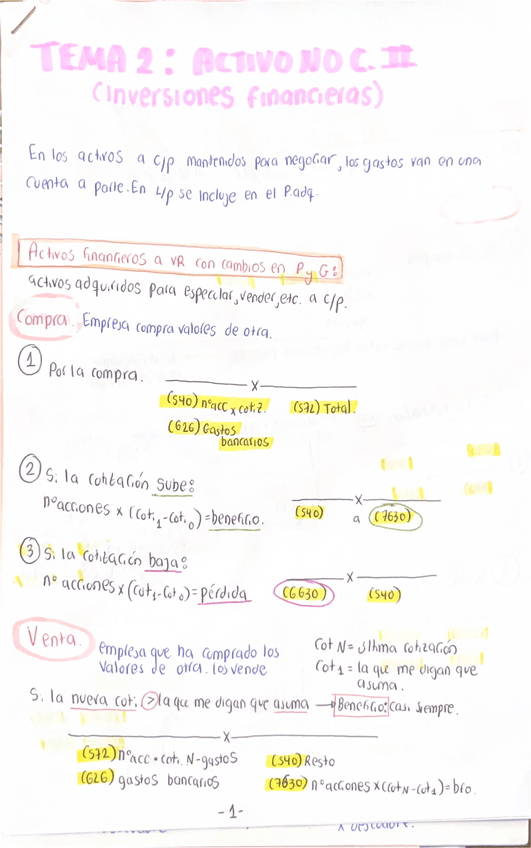 TEMA 2: ACTIVO NO C. II
(Inversiones financieras)
En los activos a c/p mantenidos para negociar, los gastos van en una
cuenta a parte. En L/p se incluye en el P.adq.
Activos financieros a VR con cambios en P y G:
activos adquiridos para especular, vender, etc. a c/p.
Compra. Empresa compra valores de otra.
① Por la compra.
x
(540) nº acc x cotiz. (572) Total.
(626) Gastos
bancarios
② Si la cotitación sube:
nº acciones x (cot₁-cot₀) = beneficio.
x
(540) a (7630)
③ Si la cotitación baja:
nº acciones x (cot₁-cot₀) = pérdida
x
(6630) (540)
Venta. empresa que ha comprado los
valores de otra. los vende
Cot N = última cotización
Cot₁ = la que me digan que
asuma.
Si la nueva cot. > la que me digan que asuma → Beneficio: casi siempre.
x
(572) nº acc · cot. N - gastos (540) Resto
(626) gastos bancarios (7630) nº acciones x (cot N - cot₁) = bro.
-1-